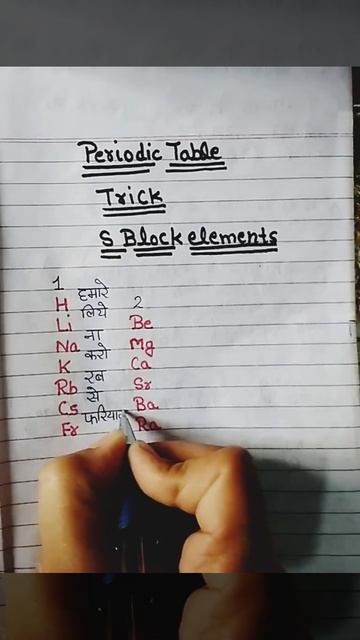 Periodic Table
Trick
S Block elements
1
H हमारे 2
Li लिये Be
Na ना Mg
K करो Ca
Rb रब Sr
Cs से Ba
Fr Ra